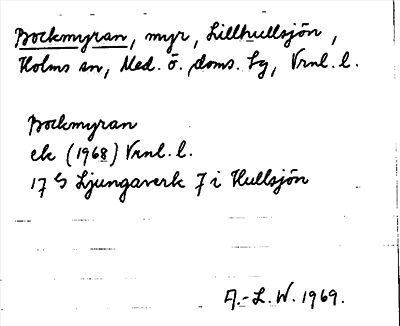 Bockmyran, myr, Lillhullsjön,
Holms sn, Med. ö. doms. fg, Vrnl. l.
Bockmyran
ek (1968) Vrnl. l.
17 G Ljungaverk 7 i Hullsjön
A.-L. W. 1969.